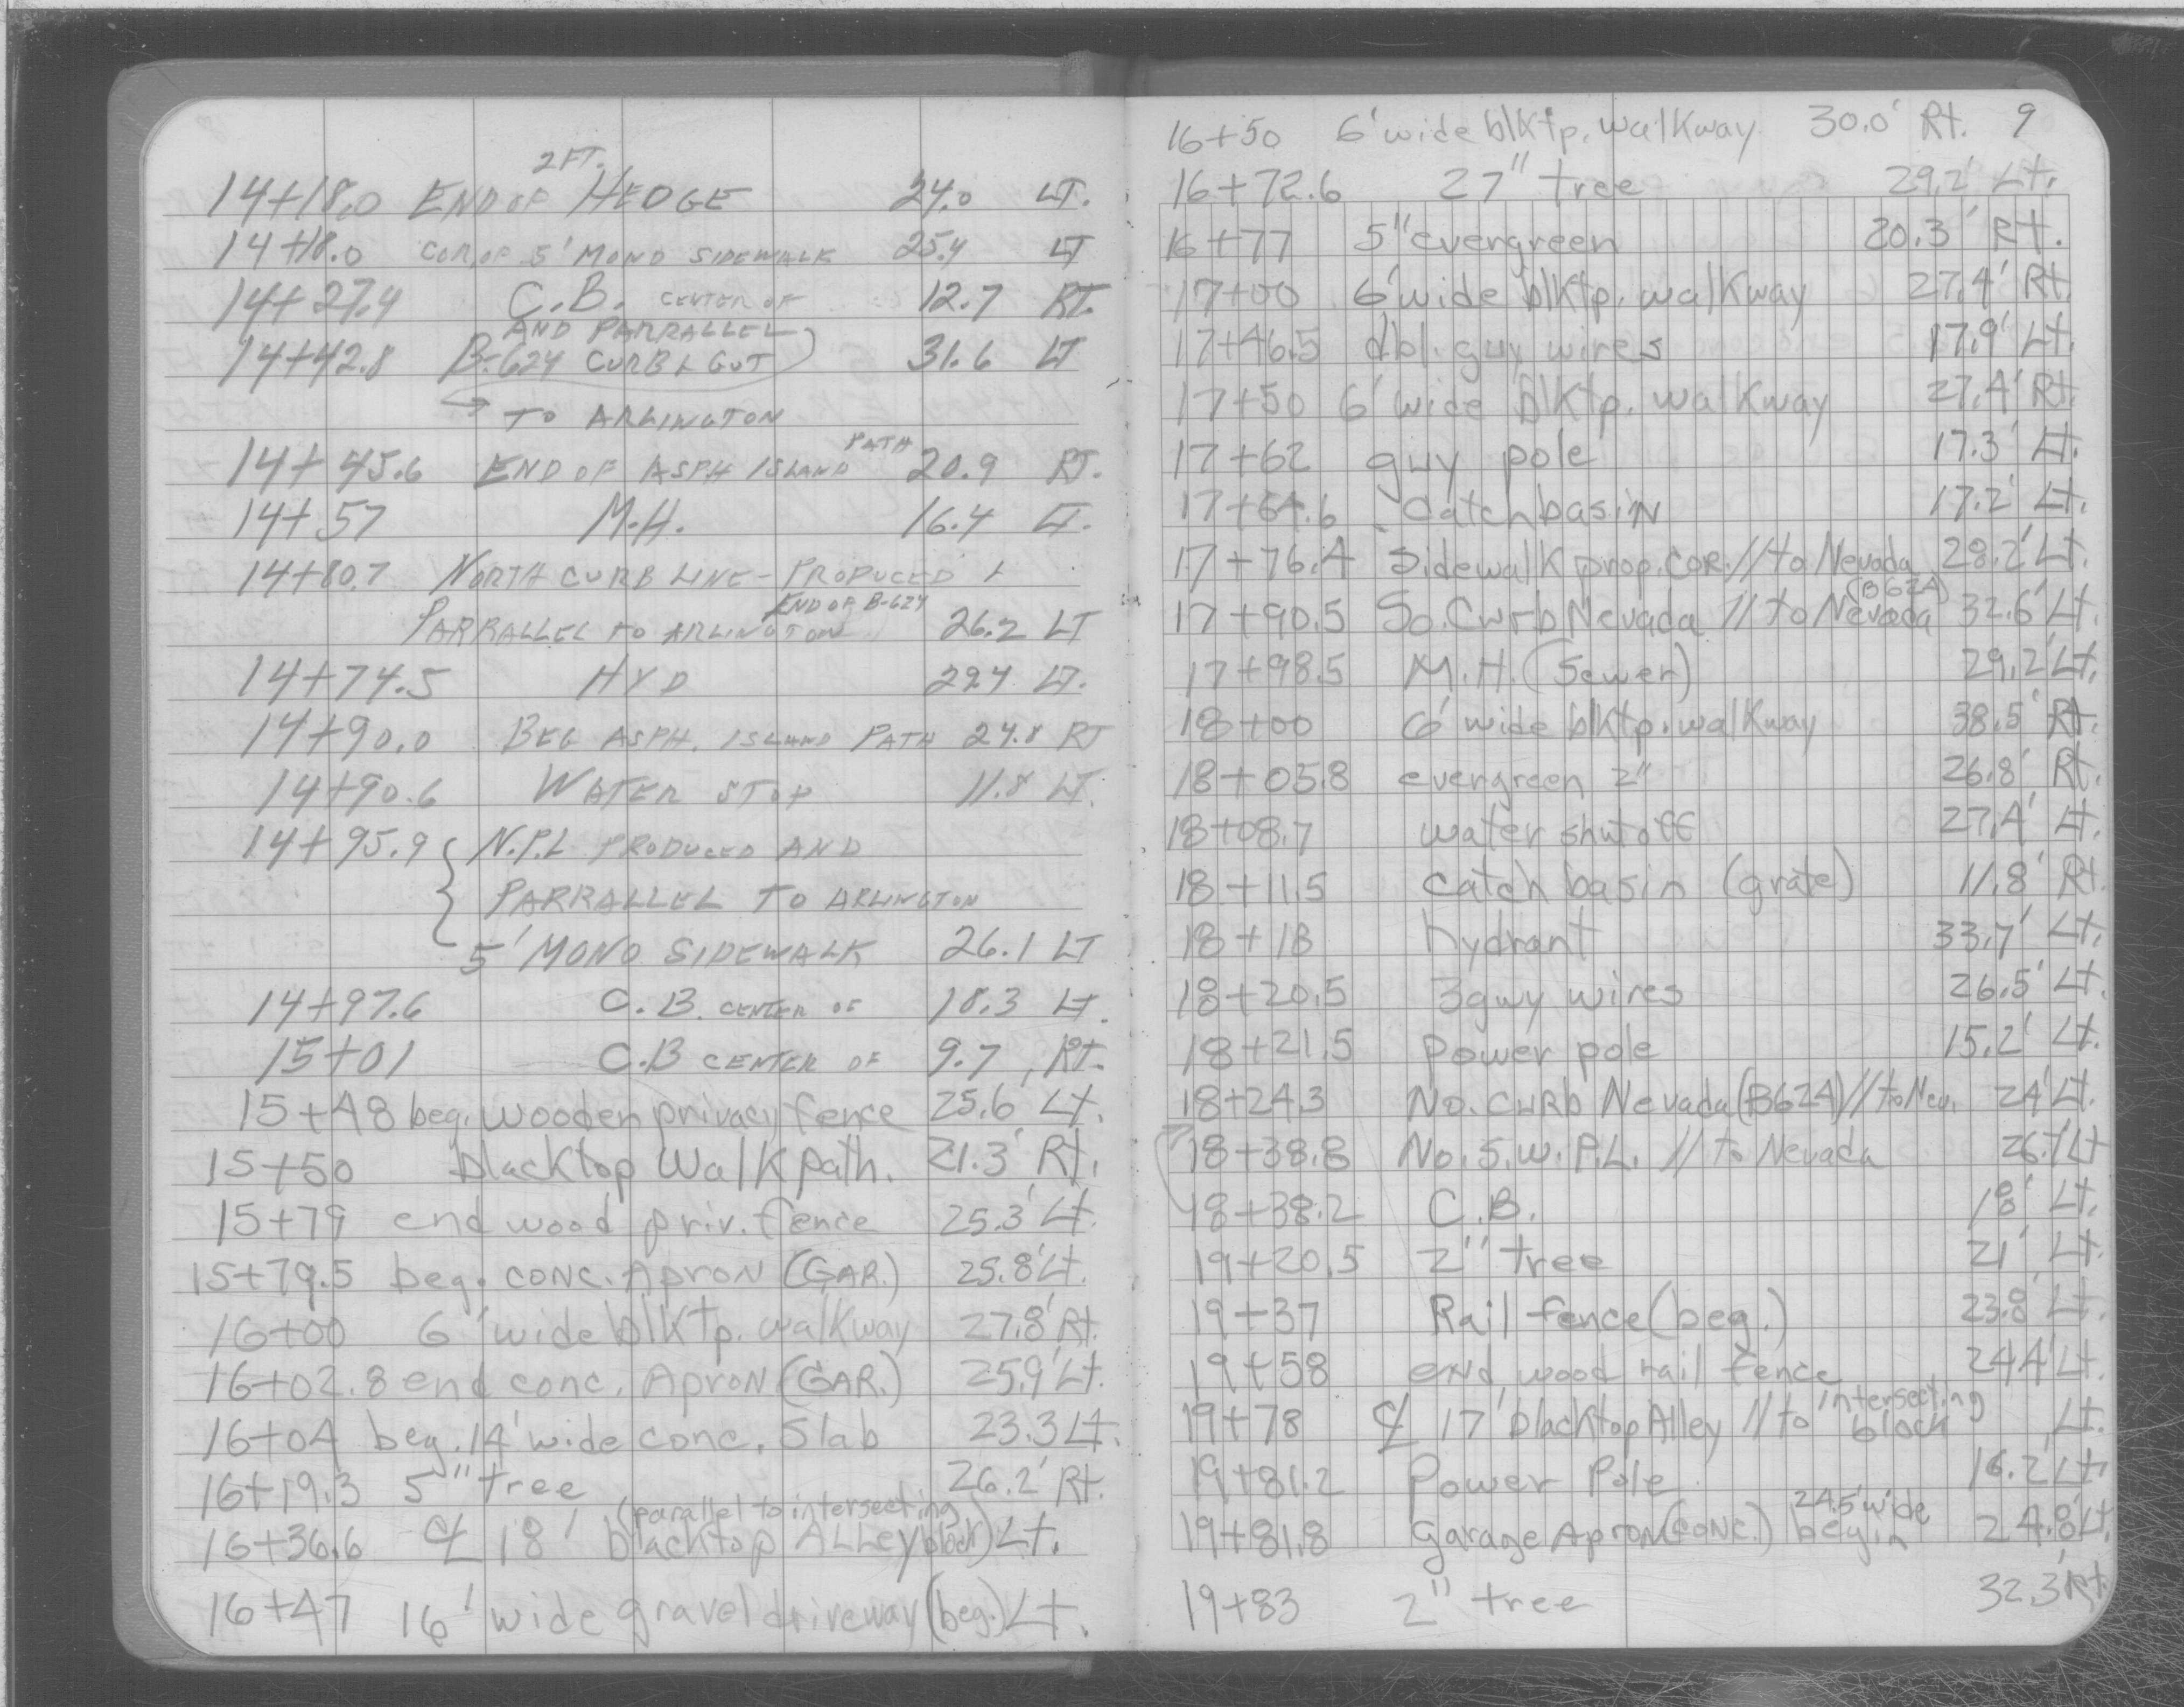 2 FT.
14+18.0 END OF HEDGE 24.0 LT.
14+18.0 COR. OF 5' MONO SIDEWALK 25.4 LT
14+27.4 C.B. CENTER OF 12.7 RT.
AND PARRALLEL
14+42.8 B-624 CURB & GUT 31.6 LT
TO ARLINGTON
14+45.6 END OF ASPH ISLAND PATH 20.9 RT.
14+57 M.H. 16.4 LT.
14+80.7 NORTH CURB LINE - PRODUCED &
END OF B-624
PARRALLEL TO ARLINGTON 26.2 LT
14+74.5 HYD 22.4 LT.
14+90.0 BEG ASPH. ISLAND PATH 24.8 RT
14+90.6 WATER STOP 11.8 LT.
14+95.9 N.P.L PRODUCED AND
PARRALLEL TO ARLINGTON
5' MONO SIDEWALK 26.1 LT
14+97.6 C.B. CENTER OF 18.3 LT.
15+01 C.B CENTER OF 9.7 Rt.
15+48 beg. wooden privacy fence 25.6' Lt.
15+50 blacktop Walkpath. 21.3' Rt.
15+79 end wood priv. fence 25.3' Lt.
15+79.5 beg. conc. Apron (GAR.) 25.8' Lt.
16+00 6' wide blktp. walkway 27.8' Rt.
16+02.8 end conc. Apron (GAR.) 25.9' Lt.
16+04 beg. 14' wide conc. Slab 23.3 Lt.
16+19.3 5" tree 26.2' Rt.
(parallel to intersecting
16+36.6 ℄ 18' blacktop ALLey block) Lt.
16+47 16' wide gravel driveway (beg.) Lt.
16+50 6' wide blktp. walkway 30.0' Rt. 9
16+72.6 27" tree 29.2' Lt.
16+77 5" evergreen 20.3' Rt.
17+00 6' wide blktp. walkway 27.4' Rt.
17+46.5 dbl. guy wires 17.9' Lt.
17+50 6' wide blktp. walkway 27.4' Rt.
17+62 guy pole 17.3' Lt.
17+64.6 Catch basin 17.2' Lt.
17+76.4 Sidewalk prop. cor. // to Nevada 28.2' Lt.
(B624)
17+90.5 So. Curb Nevada // to Nevada 32.6' Lt.
17+98.5 M.H. (Sewer) 29.2' Lt.
18+00 6' wide blktp. walkway 38.5' Rt.
18+05.8 evergreen 2" 26.8' Rt.
18+08.7 water shutoff 27.4' Lt.
18+11.5 catch basin (grate) 11.8' Rt.
18+18 hydrant 33.7' Lt.
18+20.5 3 guy wires 26.5' Lt.
18+21.5 power pole 15.2' Lt.
18+24.3 No. curb Nevada (B624) // to Nev. 24' Lt.
18+38.8 No. S.W. P.L. // to Nevada 26.7' Lt
18+38.2 C.B. 18' Lt.
19+20.5 2" tree 21' Lt.
19+37 Rail fence (beg.) 23.8' Lt.
19+58 end wood rail fence 24.4' Lt.
intersecting
19+78 ℄ 17' blacktop Alley // to block Lt.
19+81.2 Power Pole 16.2' Lt
24.5' wide
19+81.8 Garage Apron (conc.) begin 24.8' Lt.
19+83 2" tree 32.3' Rt.